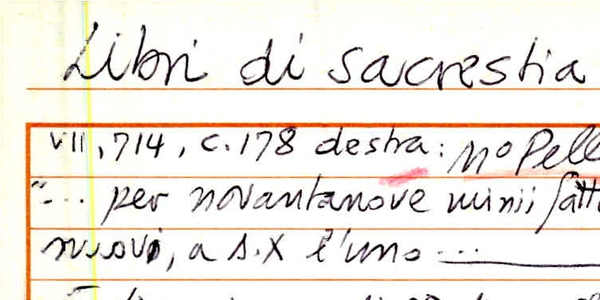 Libri di sacrestia
VII, 714, c. 178 destra: 
"... per novantanove minii
nuovi, a s. X l'uno ...